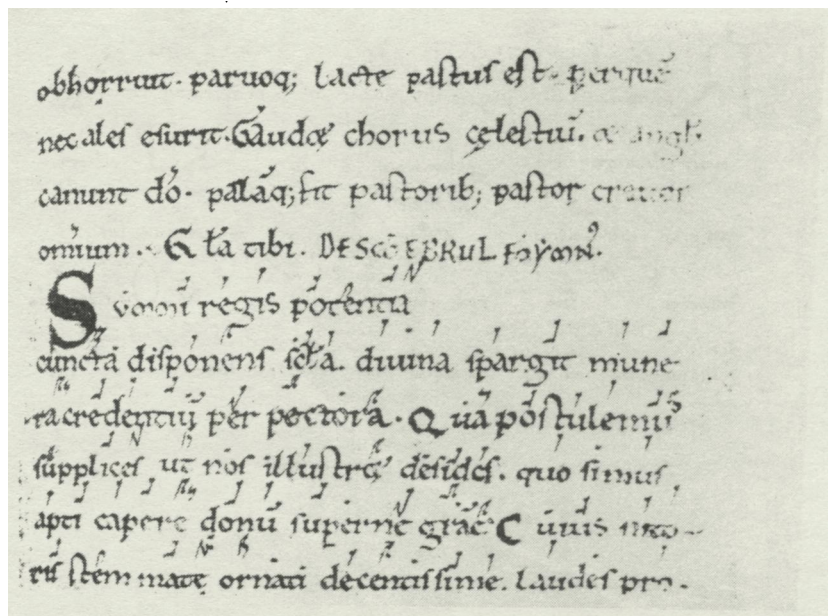 obhorruit. paruoq; lacte pastus est. perquē
nec ales esurit. Gaudet chorus cęlestiū. et angli
canunt dō. palāq; fit pastorib; pastor creator
omnium. Glā tibi. DE SCO EBRULFO YMN.
Summi regis potentia
cuncta disponens scła. diuina spargit mune
ra credentiū per pectora. Quā postulemus
supplices ut nos illustret desides. quo simus
apti capere donū superne grāe. Cuius nito
ris stemmate ornati decentissime. laudes pro